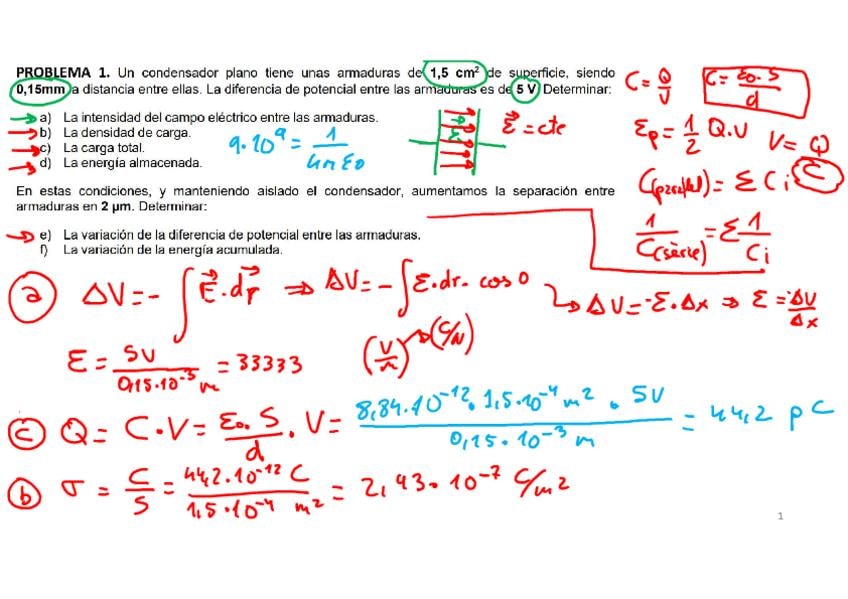 PROBLEMA 1. Un condensador plano tiene unas armaduras de 1,5 cm² de superficie, siendo
0,15mm la distancia entre ellas. La diferencia de potencial entre las armaduras es de 5 V. Determinar:
a) La intensidad del campo eléctrico entre las armaduras.
b) La densidad de carga.
c) La carga total.
d) La energía almacenada.
9·10⁹ = 1/4πε₀
E
E⃗ = cte
C = Q/V
C = ε₀·S/d
Ep = 1/2 Q·V
V = Q/C
C(paral·lel) = Σ Ci
1/C(sèrie) = Σ 1/Ci
En estas condiciones, y manteniendo aislado el condensador, aumentamos la separación entre
armaduras en 2 µm. Determinar:
e) La variación de la diferencia de potencial entre las armaduras.
f) La variación de la energía acumulada.
a ΔV = - ∫ E⃗·dr⃗ ⇒ ΔV = - ∫ E·dr·cos 0
ΔV = -E·Δx ⇒ E = -ΔV/Δx
E = 5V / 0,15·10⁻³ m = 33333 (V/m) (C/N)
c Q = C·V = ε₀·S/d · V = 8,84·10⁻¹²·1,5·10⁻⁴ m² · 5V / 0,15·10⁻³ m = 44,2 pC
b σ = C/S = 44,2·10⁻¹² C / 1,5·10⁻⁴ m² = 2,43·10⁻⁷ C/m²
1